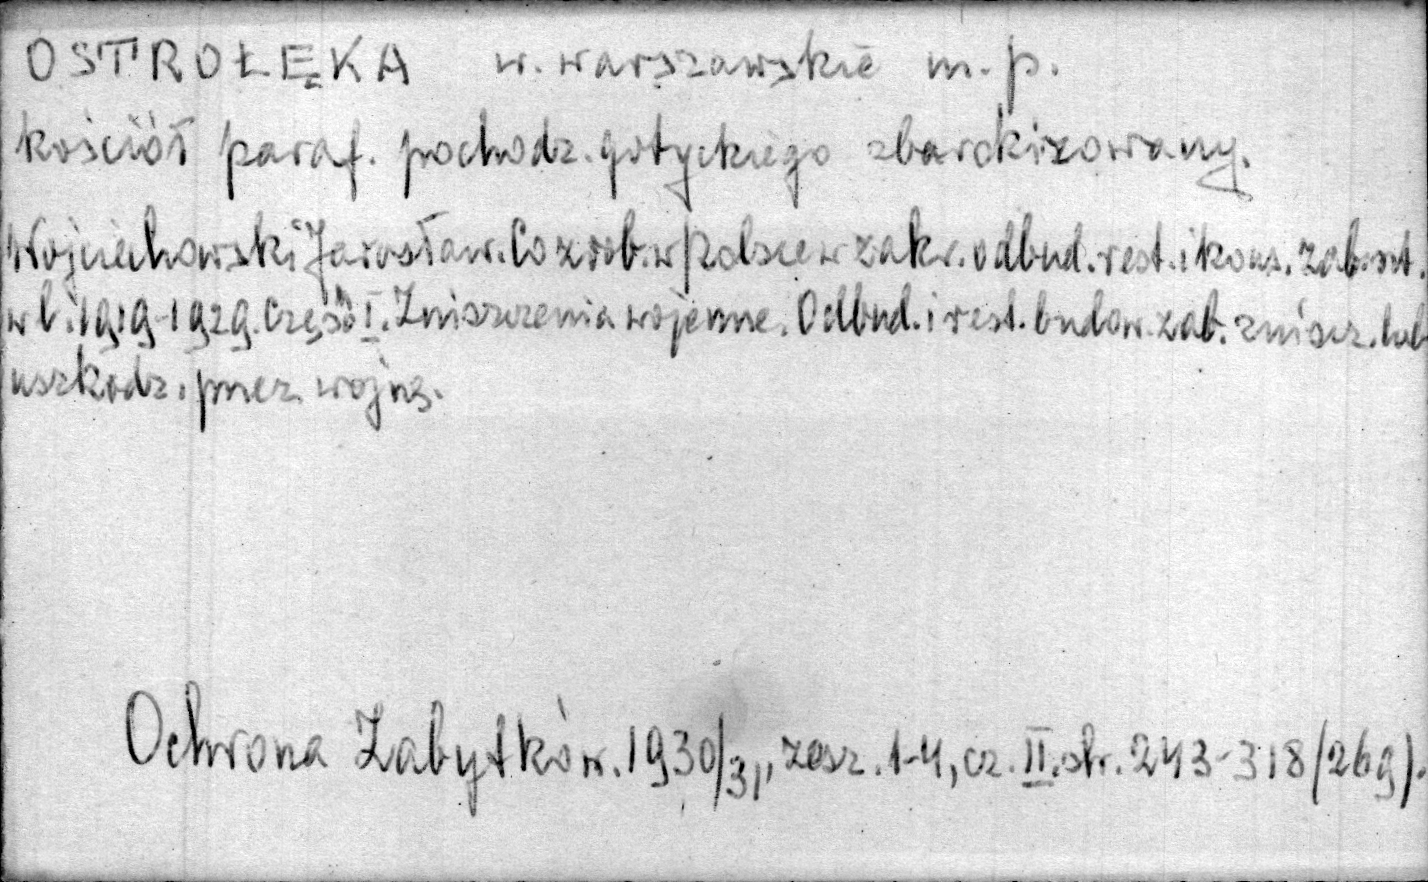 OSTROŁĘKA w. warszawskie m. p.
kościół paraf. pochodz. gotyckiego zbarokizowany.
Wojciechowski Jarosław. Co zrob. w Polsce w zakr. odbud. rest. i kons. zab. szt.
w l. 1919-1929. Część I. Zniszczenia wojenne. Odbud. i rest. budow. zab. znisz. lub
uszkodz. przez wojnę.
Ochrona Zabytków. 1930/31, zesz. 1-4, cz. II. str. 243-318 (269).